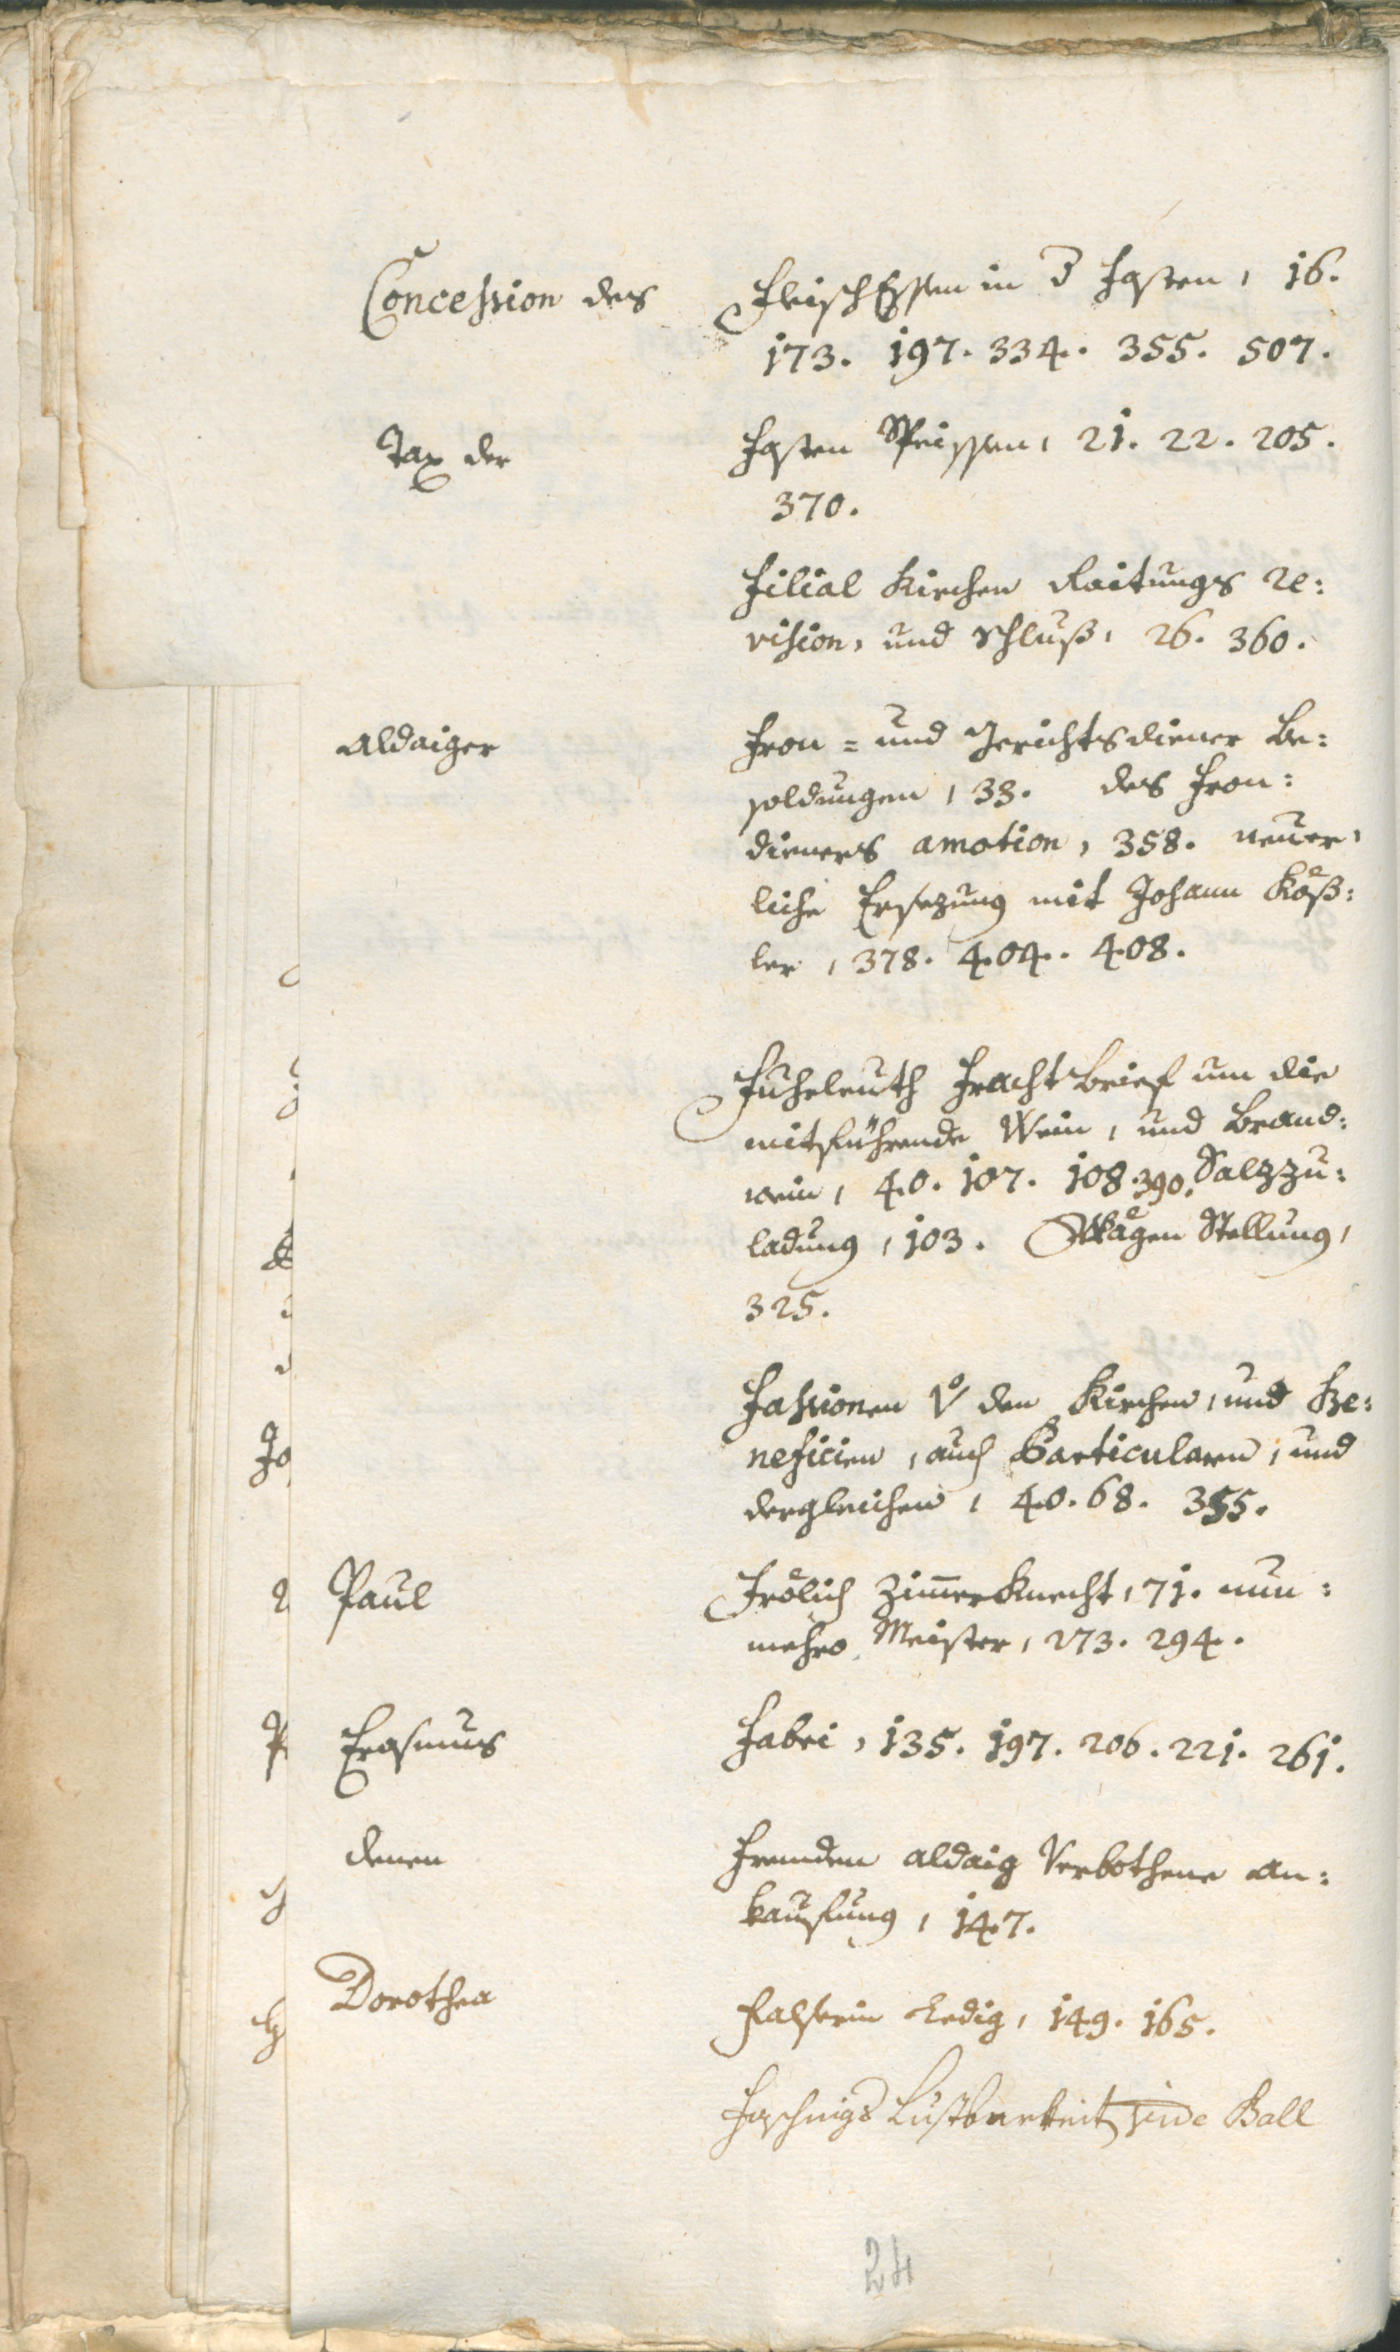 Concession des FleischEssen in d Fasten, 16.
173. 197. 334. 355. 507.
Tax der Fasten Speissen, 21. 22. 205.
370.
Filial Kirchen Raitungs Re:
vision, und Schluß, 26. 360.
Aldaiger Fron= und Gerichtsdiener Be:
soldungen, 33. des Fron:
dieners amotion, 358. neuer,
liche Ersezung mit Johann Köß:
ler, 378. 404. 408.
Fuhrleuth Frachtbrief um die
mitführende Wein, und Brand:
wein, 40. 107. 108. 390. Salzzu:
ladung, 103. Wägen Stellung,
325.
Fassionen der Kirchen, und Be:
neficien, auch Particularn, und
dergleichen, 40. 68. 355.
Paul Frölich Zimerknecht, 71. nun:
mehro Meister, 273. 294.
Erasmus Fabri, 135. 197. 206. 221. 261.
denen Fremden aldaig Verbothene an:
kauffung, 147.
Dorothea Falserin Ledig, 149. 165.
Faschings Lustbarkeit vide Ball
24